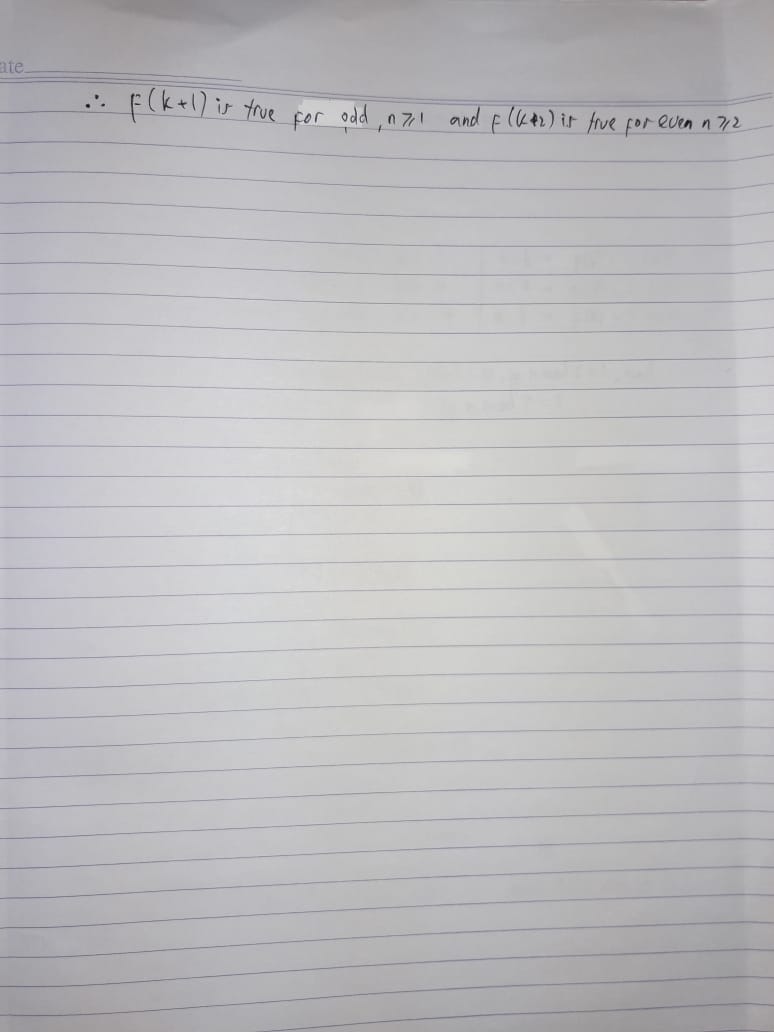 ate
∴ F(k+1) is true for odd, n⩾1 and F(k+2) is true for even n⩾2